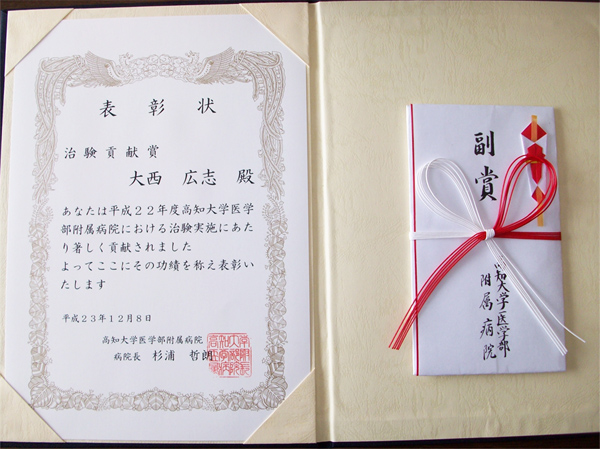 表彰状
治験貢献賞
大西 広志 殿
あなたは平成22年度高知大学医学
部附属病院における治験実施にあた
り著しく貢献されました
よってここにその功績を称え表彰い
たします
平成23年12月8日
高知大学医学部附属病院
病院長 杉浦 哲朗
副賞
知大学医学部
附属病院